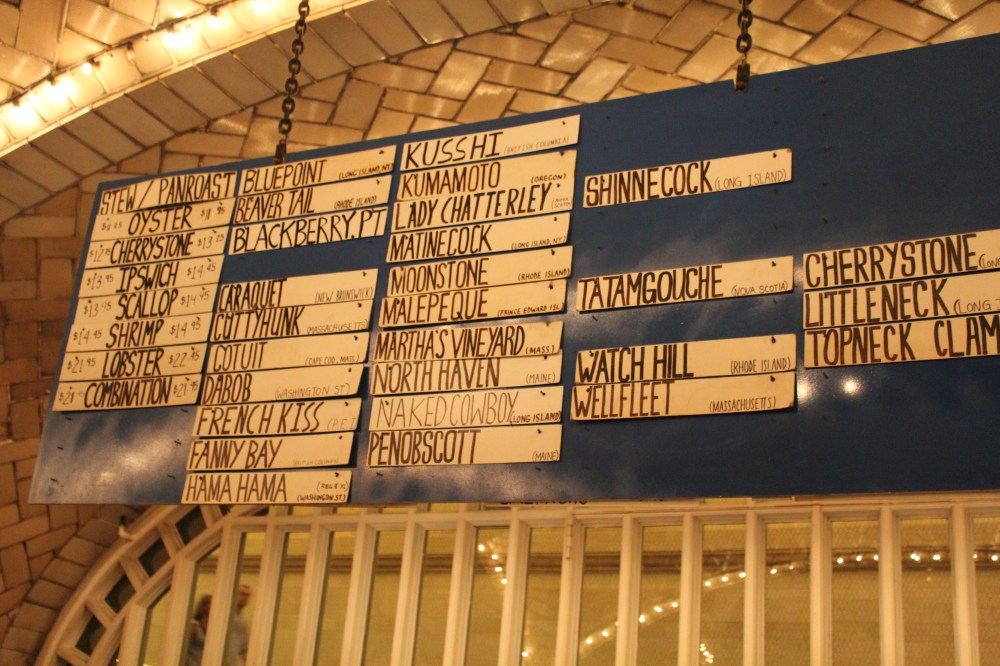 STEW / PANROAST
OYSTER
CHERRYSTONE $13.25
$13.95 IPSWICH $14.45
SCALLOP $14.45
$14.45 SHRIMP $14.95
$21.95 LOBSTER $22.45
COMBINATION $21.95
BLUEPOINT (LONG ISLAND, NY)
BEAVER TAIL (RHODE ISLAND)
BLACKBERRY. PT
CARAQUET (NEW BRUNSWICK)
CUTTYHUNK (MASSACHUSETTS)
COTUIT (CAPE COD, MASS)
DABOB (WASHINGTON ST)
FRENCH KISS
FANNY BAY
HAMA HAMA (WASHINGTON ST)
KUSSHI (BRITISH COLUMBIA)
KUMAMOTO (OREGON)
LADY CHATTERLEY
MATINECOCK (LONG ISLAND, NY)
MOONSTONE (RHODE ISLAND)
MALEPEQUE (PRINCE EDWARD ISL
MARTHA'S VINEYARD (MASS.)
NORTH HAVEN (MAINE)
NAKED COWBOY (LONG ISLAND)
PENOBSCOTT (MAINE)
SHINNECOCK (LONG ISLAND)
TATAMGOUCHE (NOVA SCOTIA)
WATCH HILL (RHODE ISLAND)
WELLFLEET (MASSACHUSETTS)
CHERRYSTONE (LON
LITTLENECK (LONG
TOPNECK CLAM